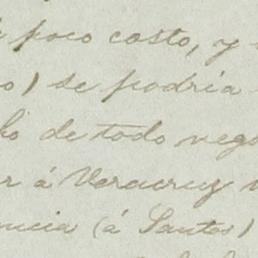 poco costo, y
o) se podría
de todo nego
r á Veracruz
ncia (á Santos)